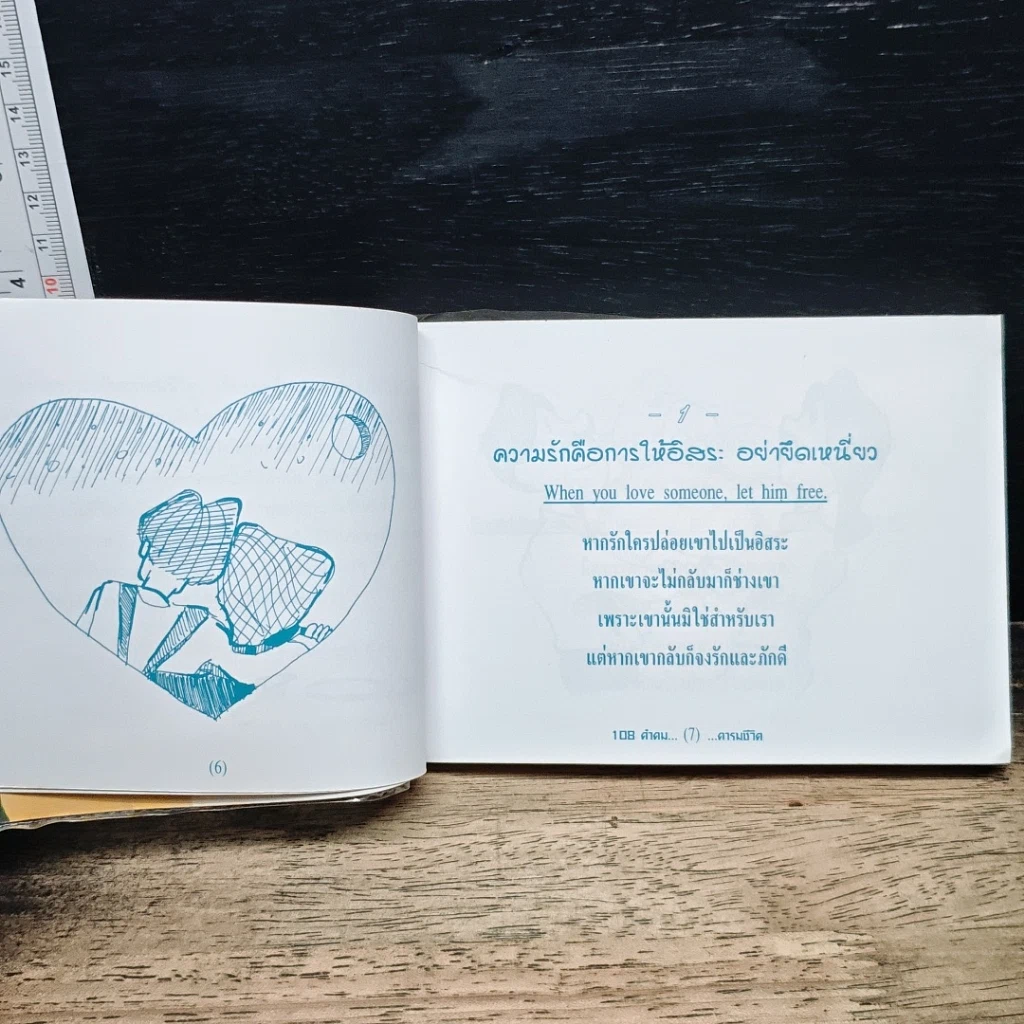 15
14
13
12
11
10
4
(6)
- 1 -
ความรักคือการให้อิสระ อย่ายึดเหนี่ยว
When you love someone, let him free.
หากรักใครปล่อยเขาไปเป็นอิสระ
หากเขาจะไม่กลับมาก็ช่างเขา
เพราะเขานั้นมิใช่สำหรับเรา
แต่หากเขากลับก็จงรักและภักดี
108 คำคม... (7) ...คารมชีวิต